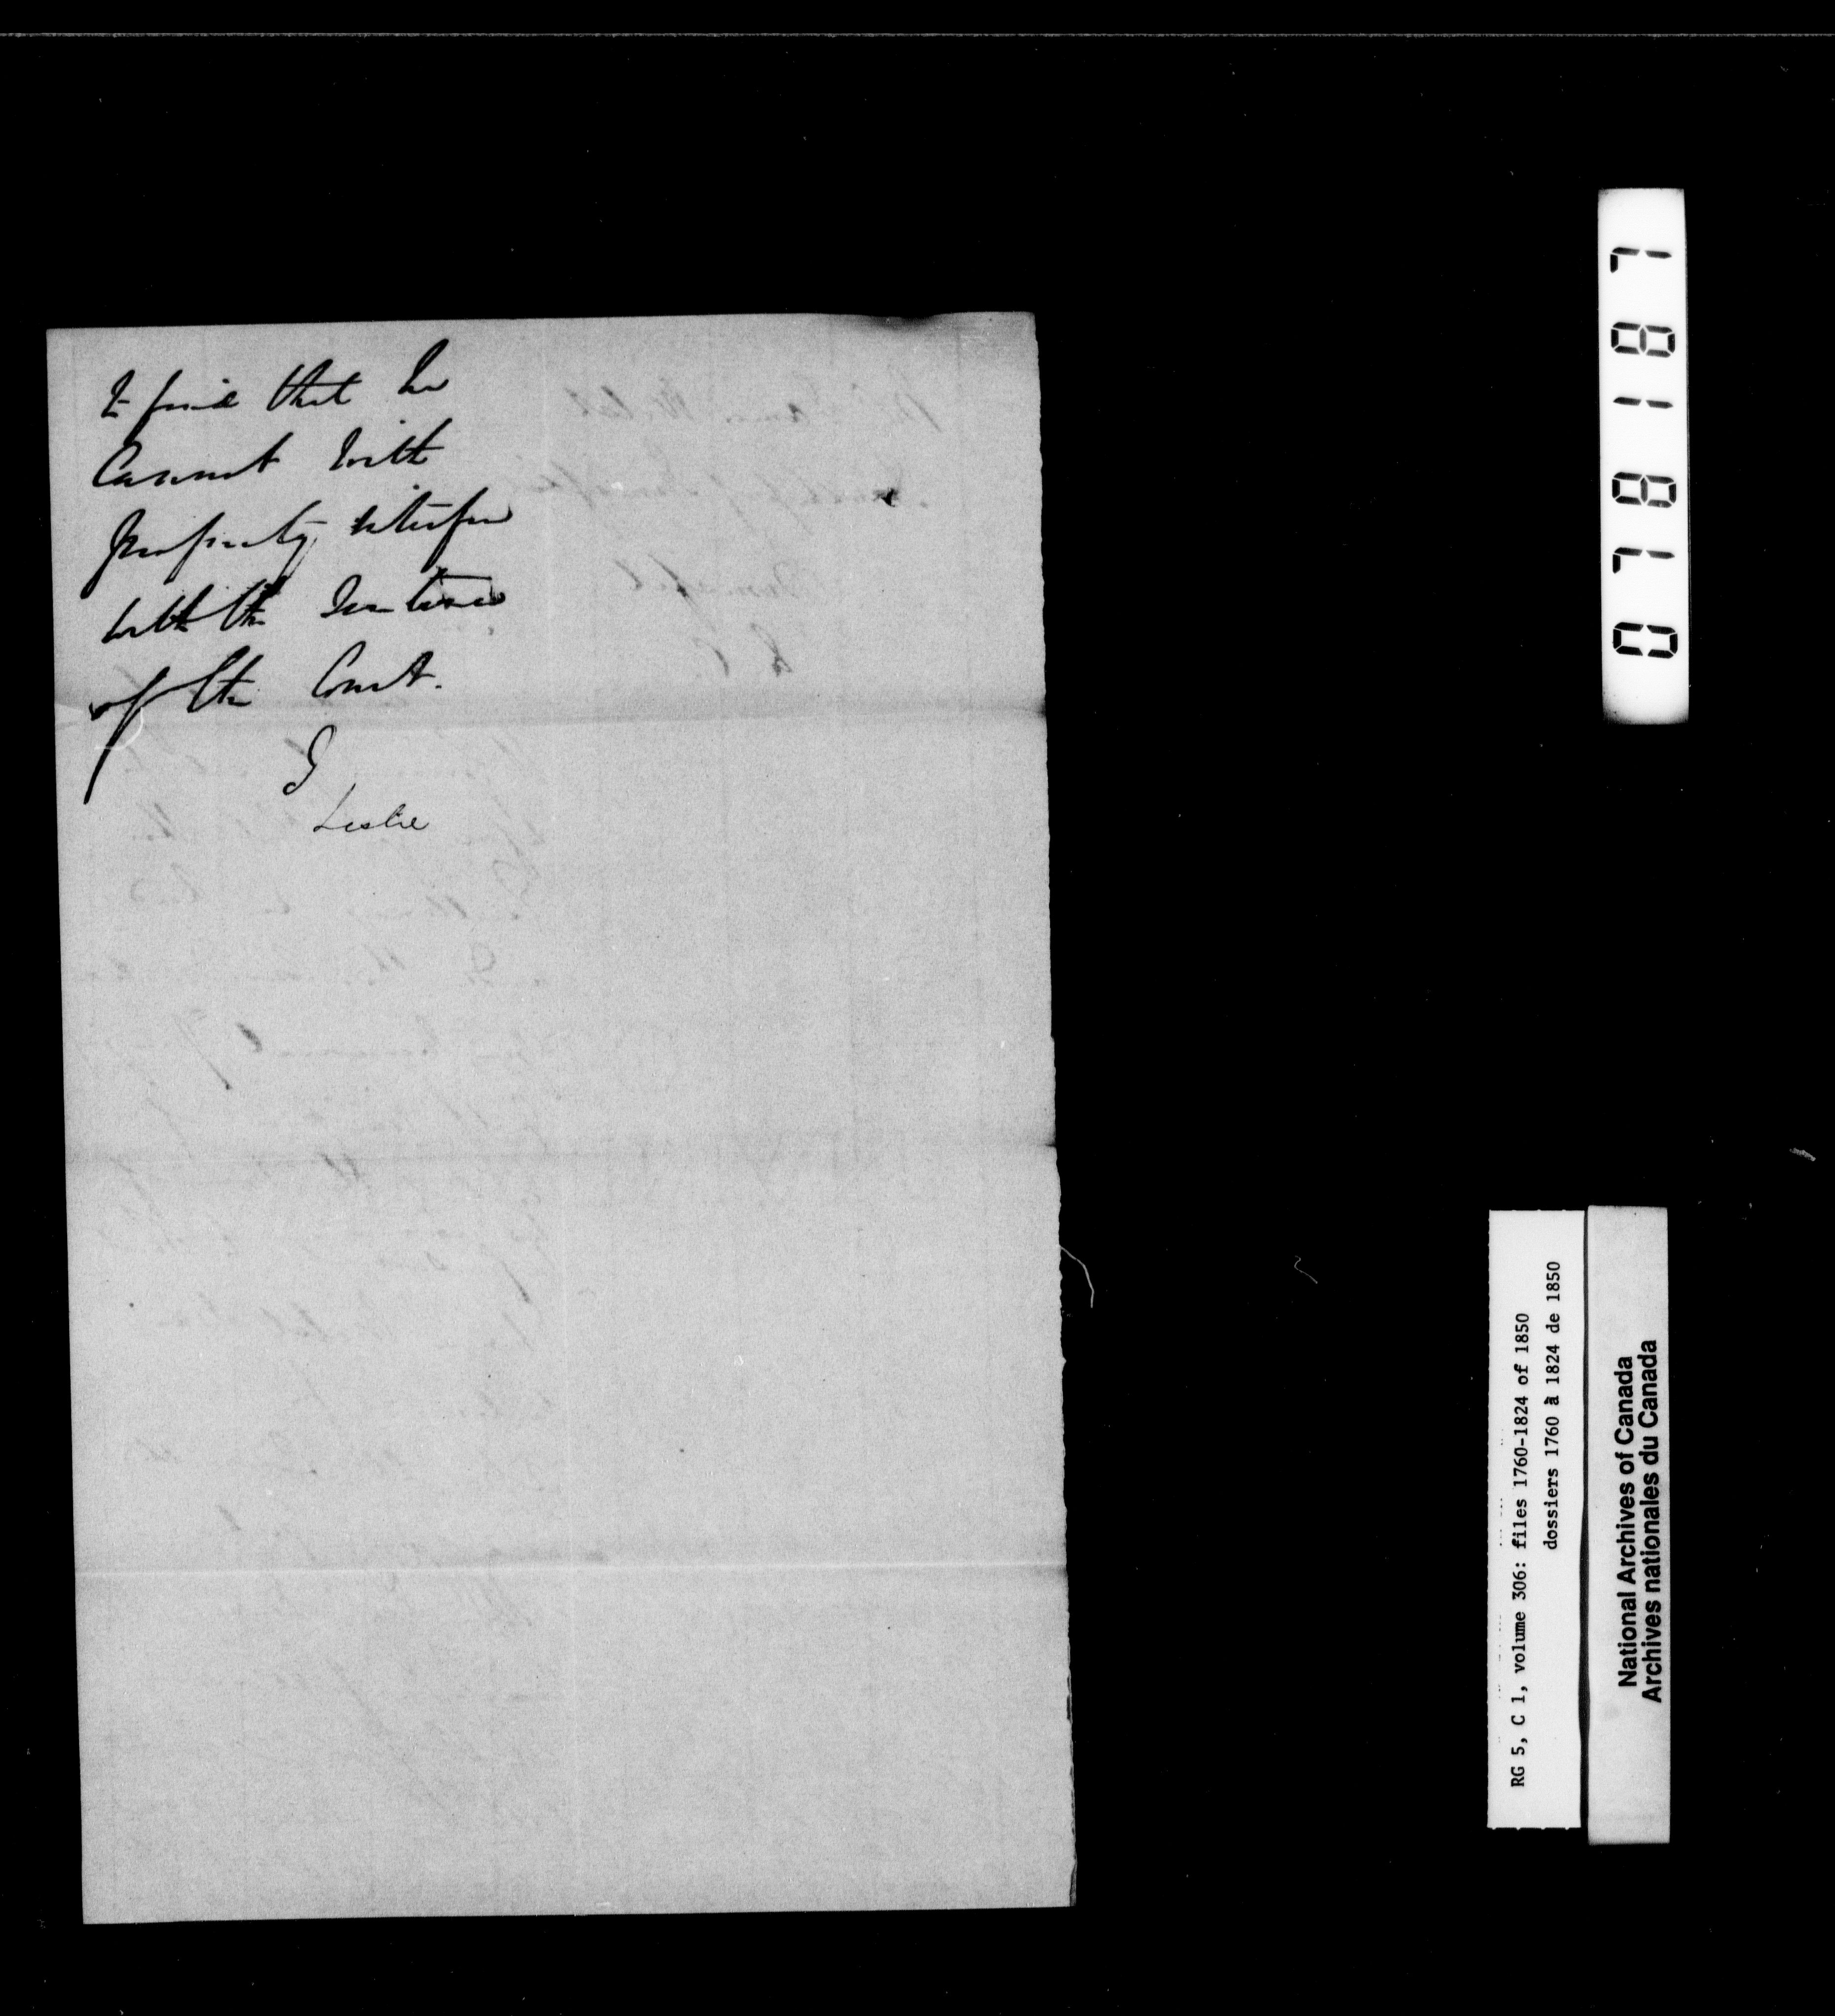 to find that he
Cannot with
propriety interfere
with the Sentence
of the Court.
J
Leslie
0718187
RG 5, C 1, volume 306: files 1760-1824 of 1850
dossiers 1760 à 1824 de 1850
National Archives of Canada
Archives nationales du Canada